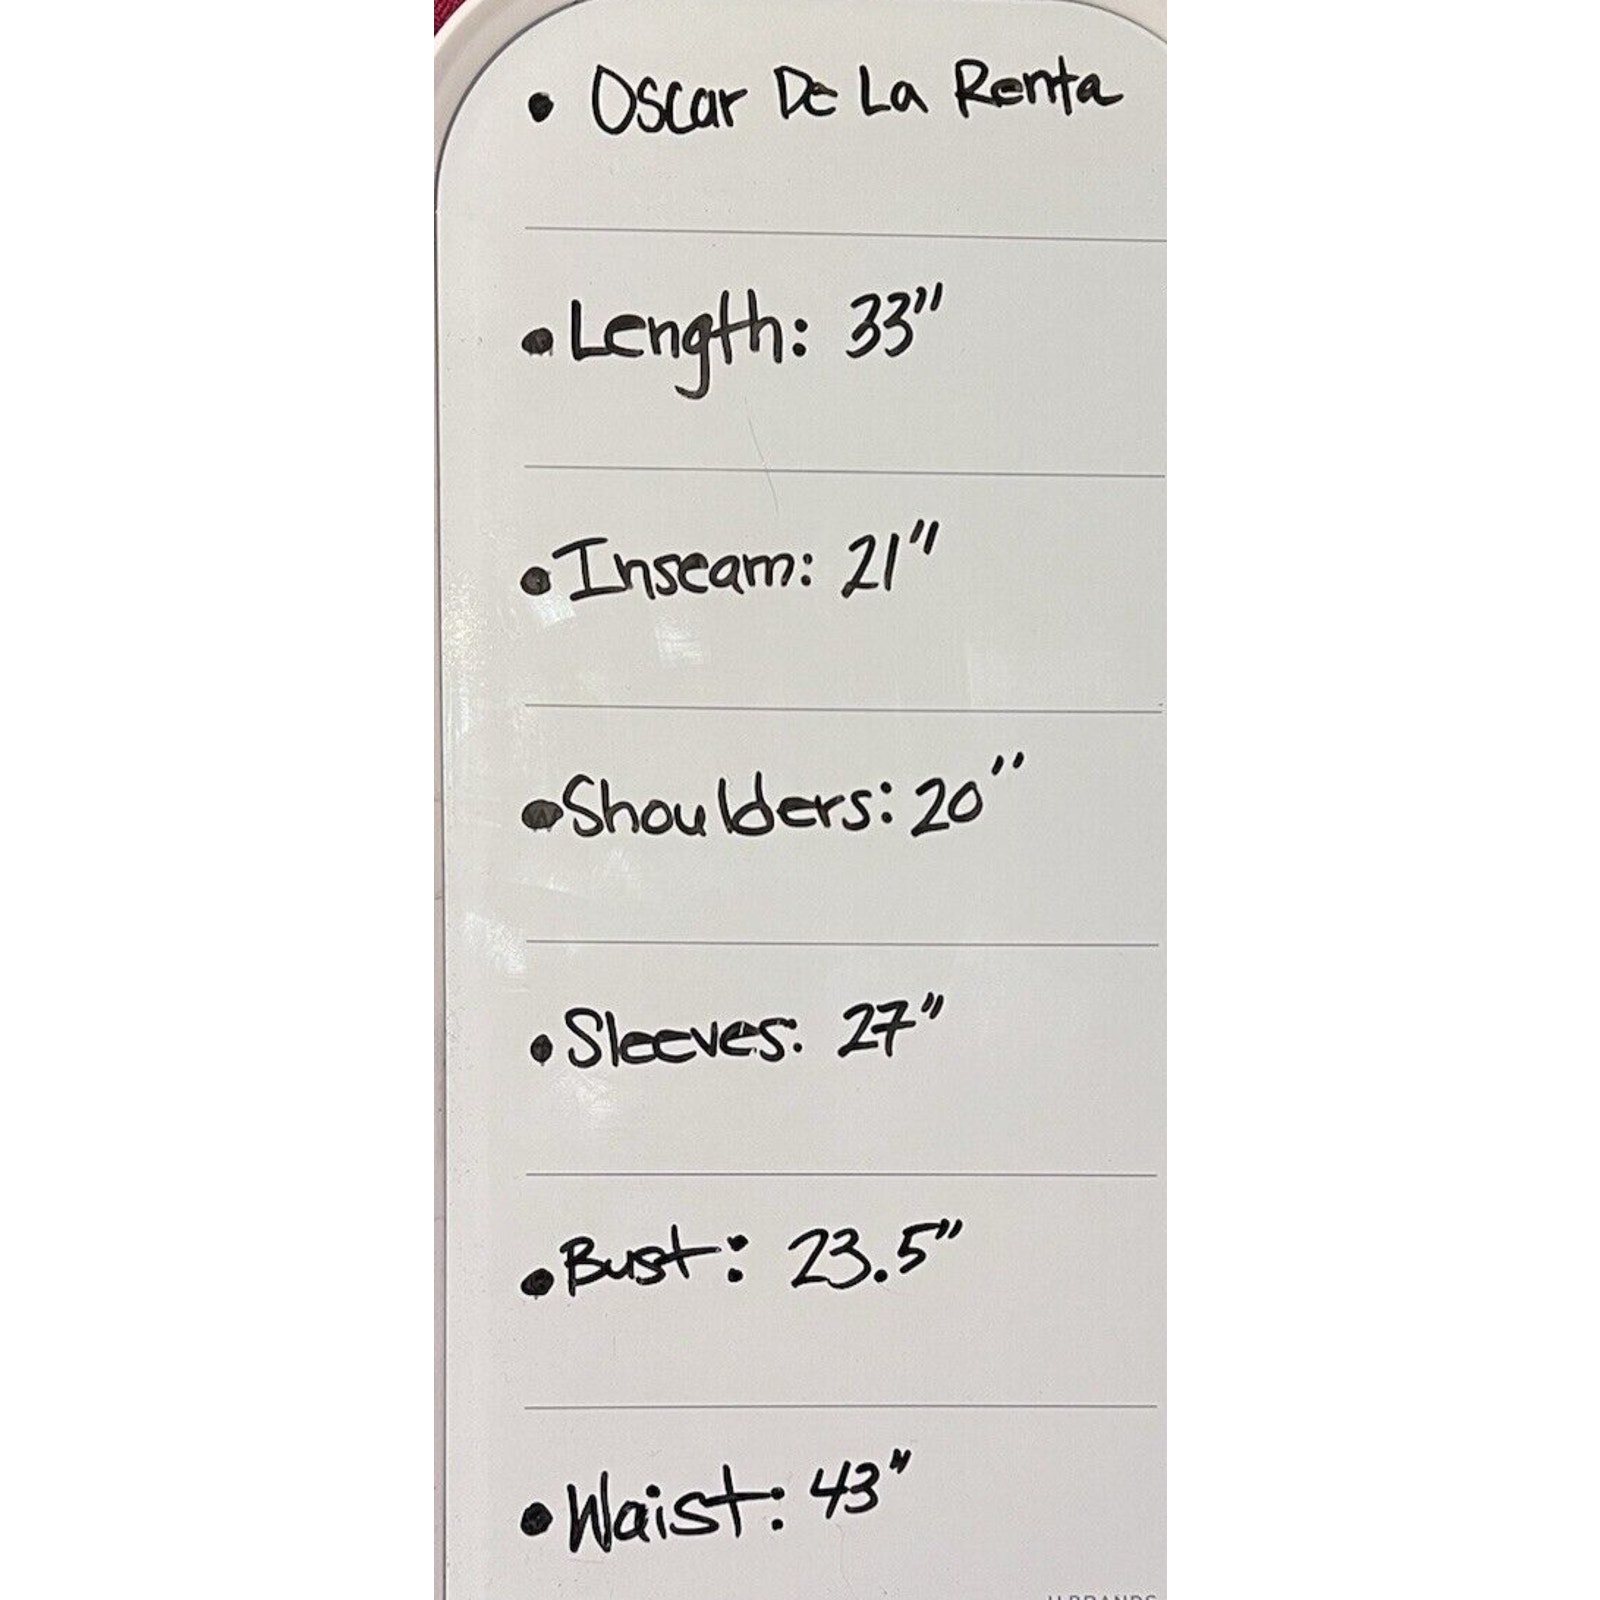 • Oscar De La Renta
• Length: 33"
• Inseam: 21"
• Shoulders: 20"
• Sleeves: 27"
• Bust: 23.5"
• Waist: 43"
U BRANDS